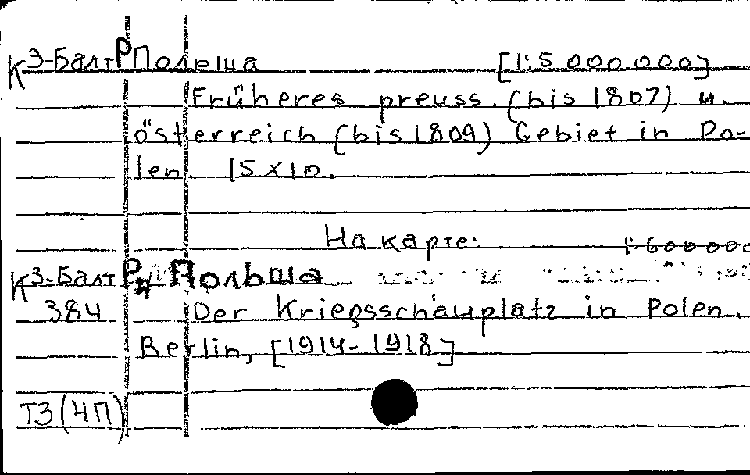 К З-Балт Р Польша [1:5 000 000]
Früheres preuss. (bis 1807) u.
österreich (bis 1809) Gebiet in Po-
len 15×10.
На карте: 1:600 000
К З-Балт Рд Польша
384 Der Kriegsschauplatz in Polen.
Berlin, [1914-1918]
ТЗ(4П)